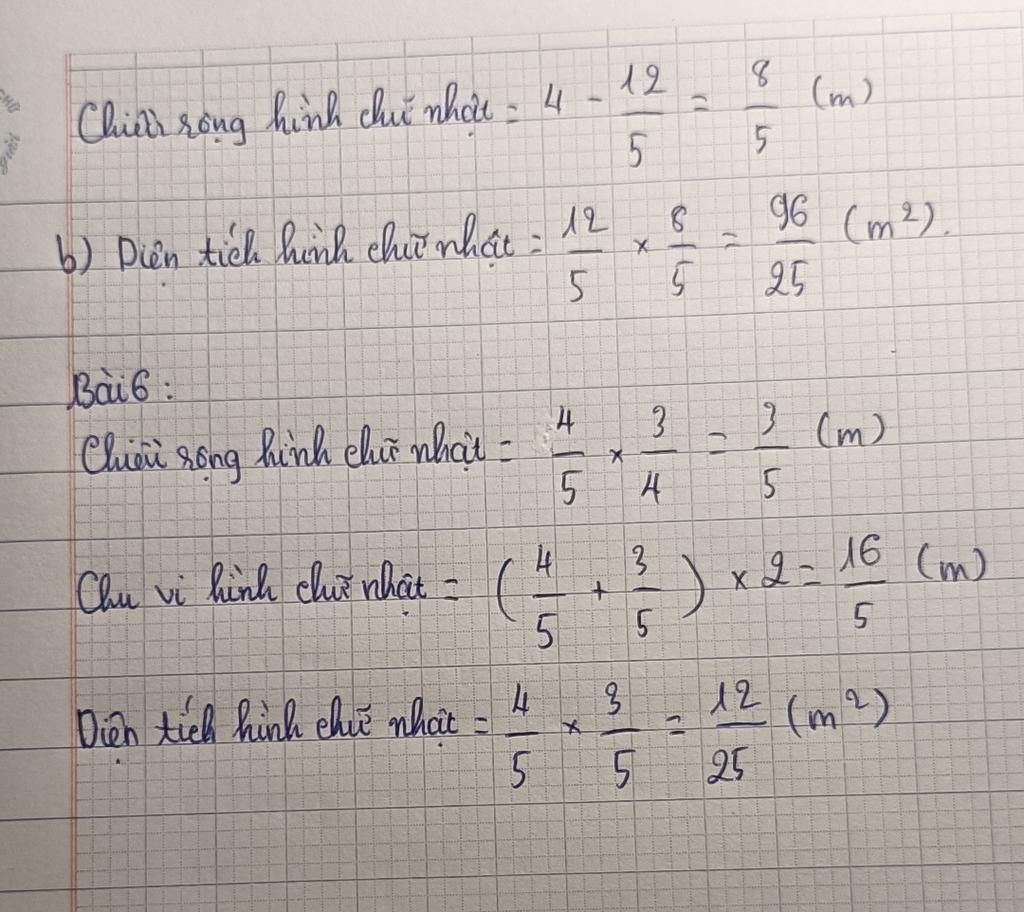 Chiều rộng hình chữ nhật = 4 - 12/5 = 8/5 (m)
b) Diện tích hình chữ nhật = 12/5 × 8/5 = 96/25 (m²).
Bài 6 :
Chiều rộng hình chữ nhật = 4/5 × 3/4 = 3/5 (m)
Chu vi hình chữ nhật = (4/5 + 3/5) × 2 = 16/5 (m)
Diện tích hình chữ nhật = 4/5 × 3/5 = 12/25 (m²)